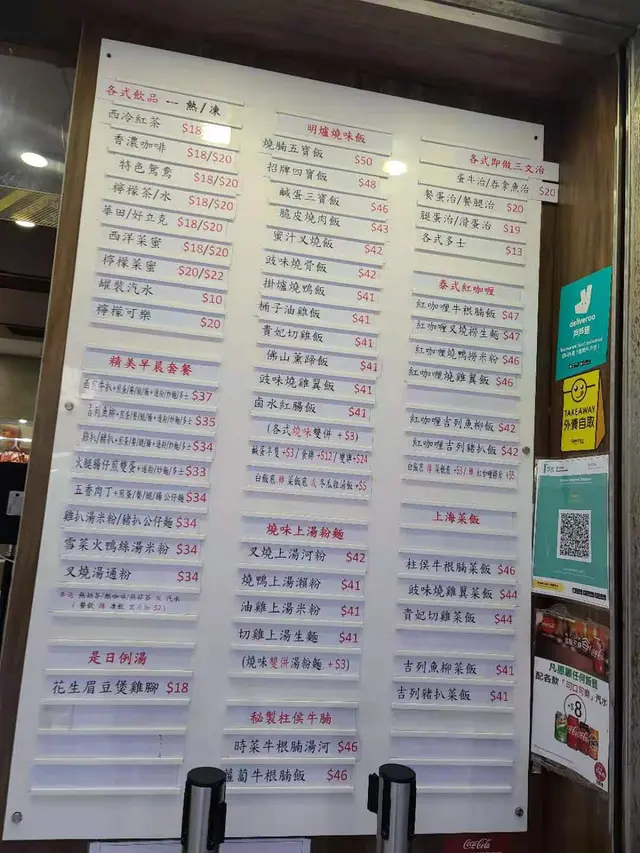 各式飲品 --- 熱/凍
西冷紅茶 $18
香濃咖啡 $18/$20
特色鴛鴦 $18/$20
檸檬茶/水 $18/$20
華田/好立克 $18/$20
西洋菜蜜 $18/$20
檸檬菜蜜 $20/$22
罐裝汽水 $10
檸檬可樂 $20
精美早晨套餐
$37
吉列魚柳+煎蛋/餐/腿/腸+通粉/炒麵/多士 $35
雞扒/豬扒+煎蛋/餐/腿/腸+通粉/炒麵/多士 $34
火腿腸仔煎雙蛋+通粉/炒麵/多士 $33
五香肉丁+煎蛋/餐/腿/腸公仔麵 $34
雞扒湯米粉/豬扒公仔麵 $34
雪菜火鴨絲湯米粉 $34
叉燒湯通粉 $34
是日例湯
花生眉豆煲雞腳 $18
明爐燒味飯
燒腩五寶飯 $50
招牌四寶飯 $48
鹹蛋三寶飯 $46
脆皮燒肉飯 $43
蜜汁叉燒飯 $42
豉味燒骨飯 $42
掛爐燒鴨飯 $41
桶子油雞飯 $41
貴妃切雞飯 $41
佛山薰蹄飯 $41
豉味燒雞翼飯 $41
鹵水紅腸飯 $41
(各式燒味雙併 +$3)
鹹蛋半隻+$3/食髀+$12/雙髀+$24
燒味上湯粉麵
叉燒上湯河粉 $42
燒鴨上湯瀨粉 $41
油雞上湯米粉 $41
切雞上湯生麵 $41
(燒味雙併湯粉麵 +$3)
秘製柱侯牛腩
時菜牛根腩湯河 $46
蘿蔔牛根腩飯 $46
各式即做三文治
蛋牛治/吞拿魚治 $20
餐蛋治/餐腿治 $20
腿蛋治/滑蛋治 $19
各式多士 $13
泰式紅咖喱
紅咖喱牛根腩飯 $47
紅咖喱叉燒撈生麵 $47
紅咖喱燒鴨撈米粉 $46
紅咖喱燒雞翼飯 $46
紅咖喱吉列魚柳飯 $42
紅咖喱吉列豬扒飯 $42
上海菜飯
柱侯牛根腩菜飯 $46
豉味燒雞翼菜飯 $44
貴妃切雞菜飯 $44
吉列魚柳菜飯 $41
吉列豬扒菜飯 $41
deliveroo
戶戶送
TAKEAWAY
外賣自取
凡惠顧任何飯餐
配各款「可口可樂」汽水
$8
Coca-Cola